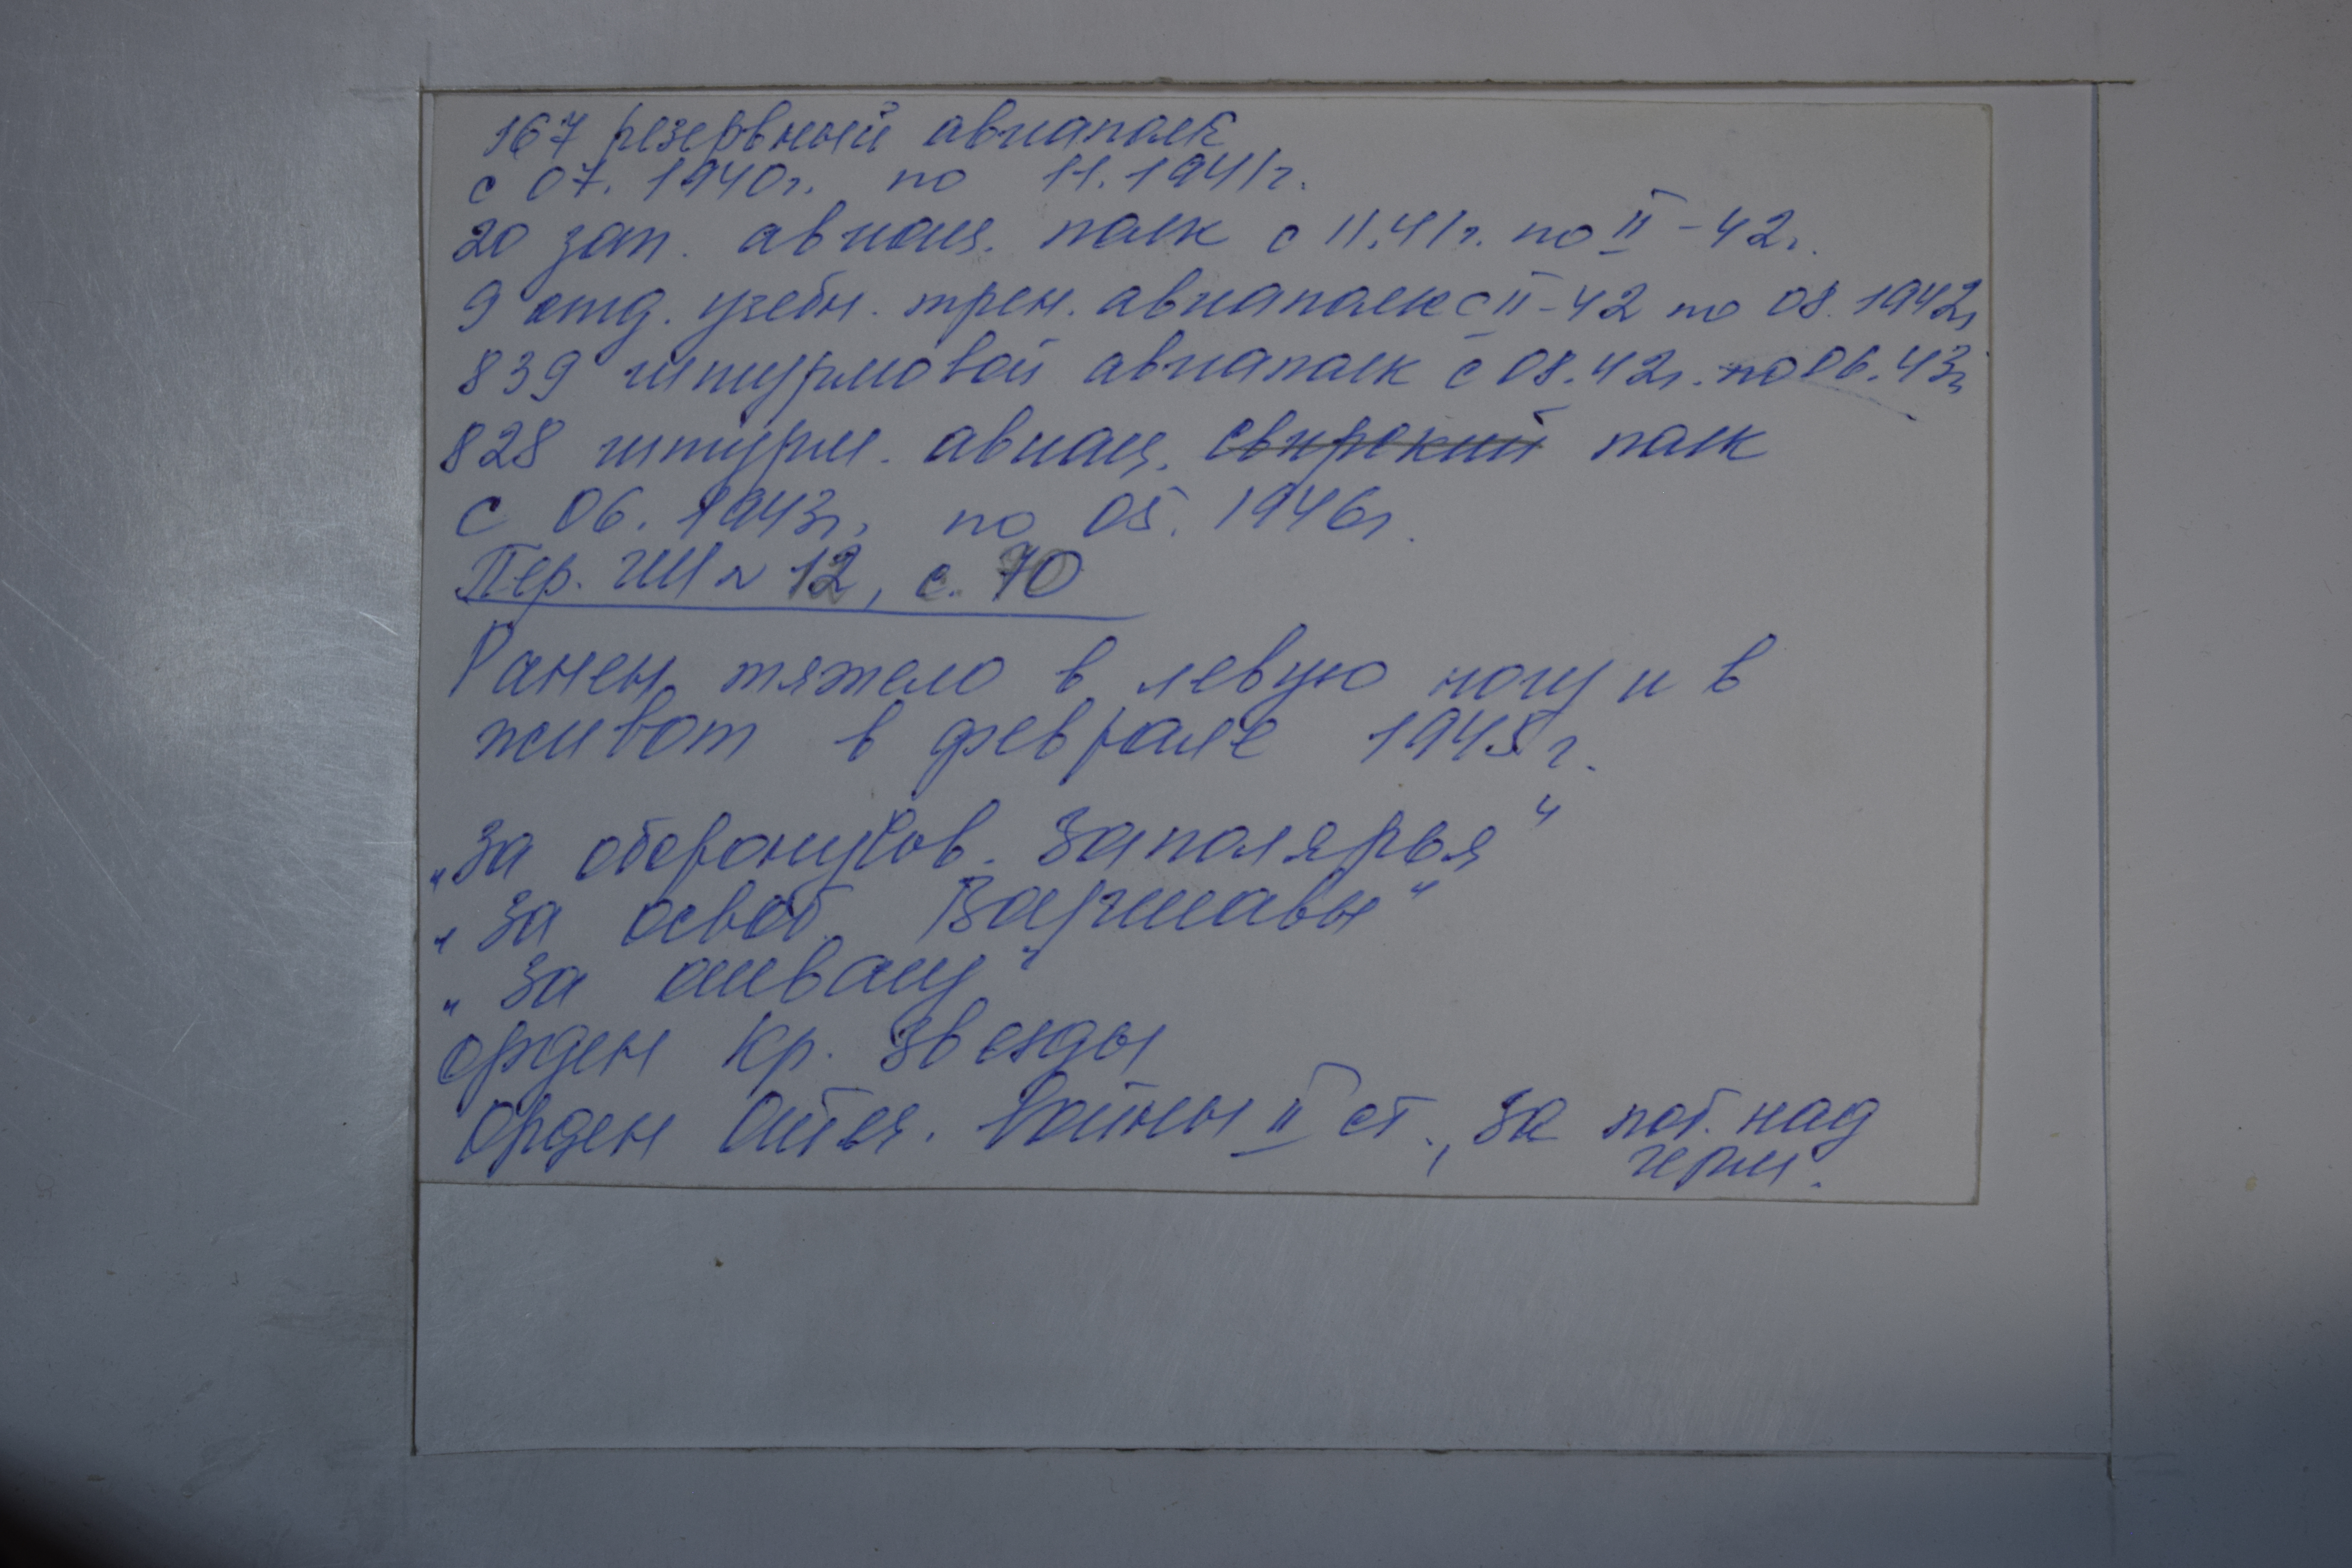 167 резервный авиаполк
с 07. 1940г. по 11. 1941г.
20 зап. авиац. полк с 11.41г. по II-42г.
9 отд. учебн. трен. авиаполк с II-42 по 08. 1942г
839 штурмовой авиаполк с 08.42г. по 06.43г
828 штурм. авиац. свирский полк
с 06. 1943г. по 05. 1946г.
Пер. ШМ 12, с. 70
Ранен тяжело в левую ногу и в
живот в феврале 1945г.
„За оборону Сов. Заполярья“
„За освоб. Варшавы“
„За отвагу“
орден Кр. Звезды
Орден Отеч. Войны II ст., За поб. над
герм.